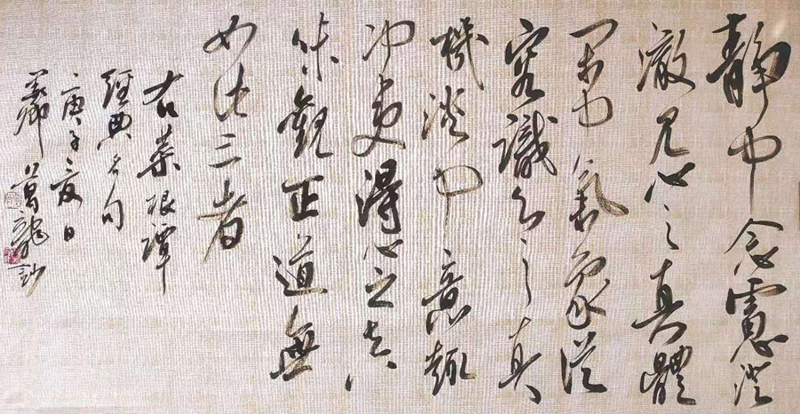 靜中念慮澄
澈見心之真體
閒中氣象從
容識心之真
機淡中意趣
冲夷得心之真
味觀正道無
如此三者
右菜根譚
經典名句
庚子夏日
萬龍鈔